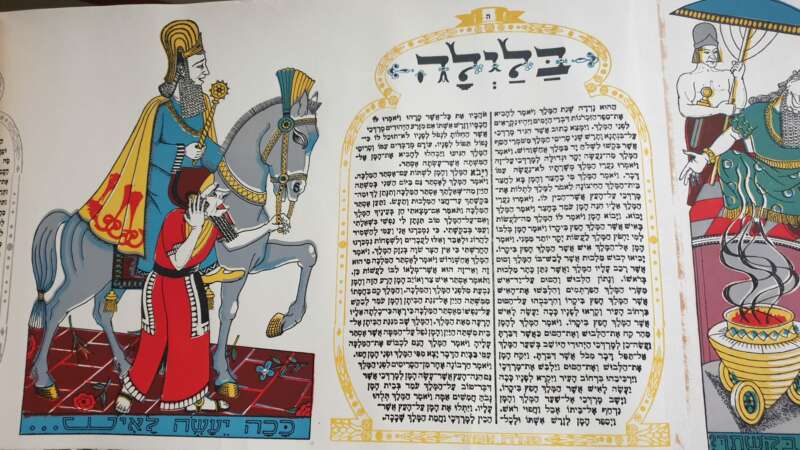 ה
בַּלַּיְלָה
ההוא נדדה שנת המלך ויאמר להביא
את־ספר הזכרנות דברי הימים ויהיו נקראים
לפני המלך. וימצא כתוב אשר הגיד מרדכי
על־בגתנא ותרש שני סריסי המלך משמרי הסף
אשר בקשו לשלח יד במלך אחשורוש. ויאמר
המלך מה־נעשה יקר וגדולה למרדכי על־זה
ויאמרו נערי המלך משרתיו לא־נעשה עמו
דבר. ויאמר המלך מי בחצר והמן בא לחצר
בית־המלך החיצונה לאמר למלך לתלות את־
מרדכי על־העץ אשר־הכין לו. ויאמרו נערי
המלך אליו הנה המן עמד בחצר ויאמר המלך
יבוא. ויבוא המן ויאמר לו המלך מה־לעשות
באיש אשר המלך חפץ ביקרו ויאמר המן בלבו
למי יחפץ המלך לעשות יקר יותר ממני. ויאמר
המן אל־המלך איש אשר המלך חפץ ביקרו
יביאו לבוש מלכות אשר לבש־בו המלך וסוס
אשר רכב עליו המלך ואשר נתן כתר מלכות
בראשו. ונתון הלבוש והסוס על־יד־איש
משרי המלך הפרתמים והלבישו את־האיש
אשר המלך חפץ ביקרו והרכיבהו על־הסוס
ברחוב העיר וקראו לפניו ככה יעשה לאיש
אשר המלך חפץ ביקרו. ויאמר המלך להמן
מהר קח את־הלבוש ואת־הסוס כאשר דברת
ועשה־כן למרדכי היהודי היושב בשער המלך
אל־תפל דבר מכל אשר דברת. ויקח המן
את־הלבוש ואת־הסוס וילבש את־מרדכי
וירכיבהו ברחוב העיר ויקרא לפניו ככה
יעשה לאיש אשר המלך חפץ ביקרו.
וישב מרדכי אל־שער המלך והמן
נדחף אל־ביתו אבל וחפוי ראש.
ויספר המן לזרש אשתו ולכל־
אהביו את כל־אשר קרהו ויאמרו לו
חכמיו וזרש אשתו אם מזרע היהודים מרדכי
אשר החלות לנפל לפניו לא־תוכל לו כי־
נפול תפול לפניו. עודם מדברים עמו וסריסי
המלך הגיעו ויבהלו להביא את־המן אל־
המשתה אשר־עשתה אסתר.
ויבא המלך והמן לשתות עם־אסתר המלכה.
ויאמר המלך לאסתר גם ביום השני במשתה
היין מה־שאלתך אסתר המלכה ותנתן לך ומה־
בקשתך עד־חצי המלכות ותעש. ותען אסתר
המלכה ותאמר אם־מצאתי חן בעיניך המלך
ואם־על־המלך טוב תנתן לי נפשי בשאלתי
ועמי בבקשתי. כי נמכרנו אני ועמי להשמיד
להרוג ולאבד ואלו לעבדים ולשפחות נמכרנו
החרשתי כי אין הצר שוה בנזק המלך.
ויאמר המלך אחשורוש ויאמר לאסתר המלכה מי הוא
זה ואי־זה הוא אשר־מלאו לבו לעשות כן.
ותאמר אסתר איש צר ואויב המן הרע הזה והמן
נבעת מלפני המלך והמלכה. והמלך קם בחמתו
ממשתה היין אל־גנת הביתן והמן עמד לבקש
על־נפשו מאסתר המלכה כי ראה כי־כלתה אליו
הרעה מאת המלך. והמלך שב מגנת הביתן אל־
בית משתה היין והמן נפל על־המטה אשר אסתר
עליה ויאמר המלך הגם לכבוש את־המלכה
עמי בבית הדבר יצא מפי המלך ופני המן חפו.
ויאמר חרבונה אחד מן־הסריסים לפני המלך
גם הנה־העץ אשר־עשה המן למרדכי אשר
דבר־טוב על־המלך עמד בבית המן
גבה חמשים אמה ויאמר המלך תלהו
עליו. ויתלו את־המן על־העץ אשר־
הכין למרדכי וחמת המלך שככה.
כָּכָה יֵעָשֶׂה לָאִישׁ...